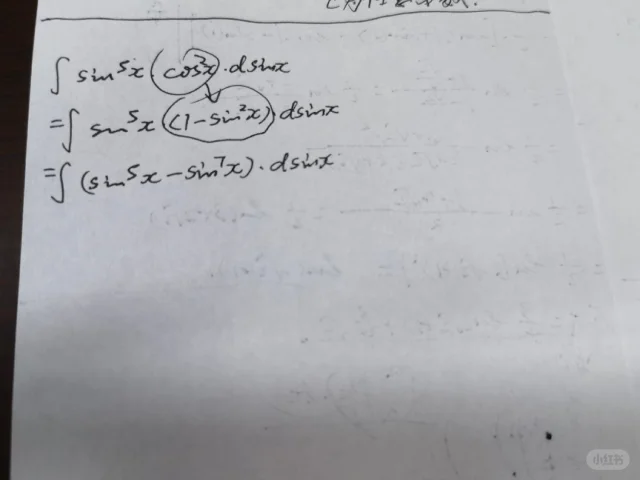 ∫ sin⁵x (cos²x)·dsinx
= ∫ sin⁵x (1-sin²x)·dsinx
= ∫ (sin⁵x - sin⁷x)·dsinx
小红书